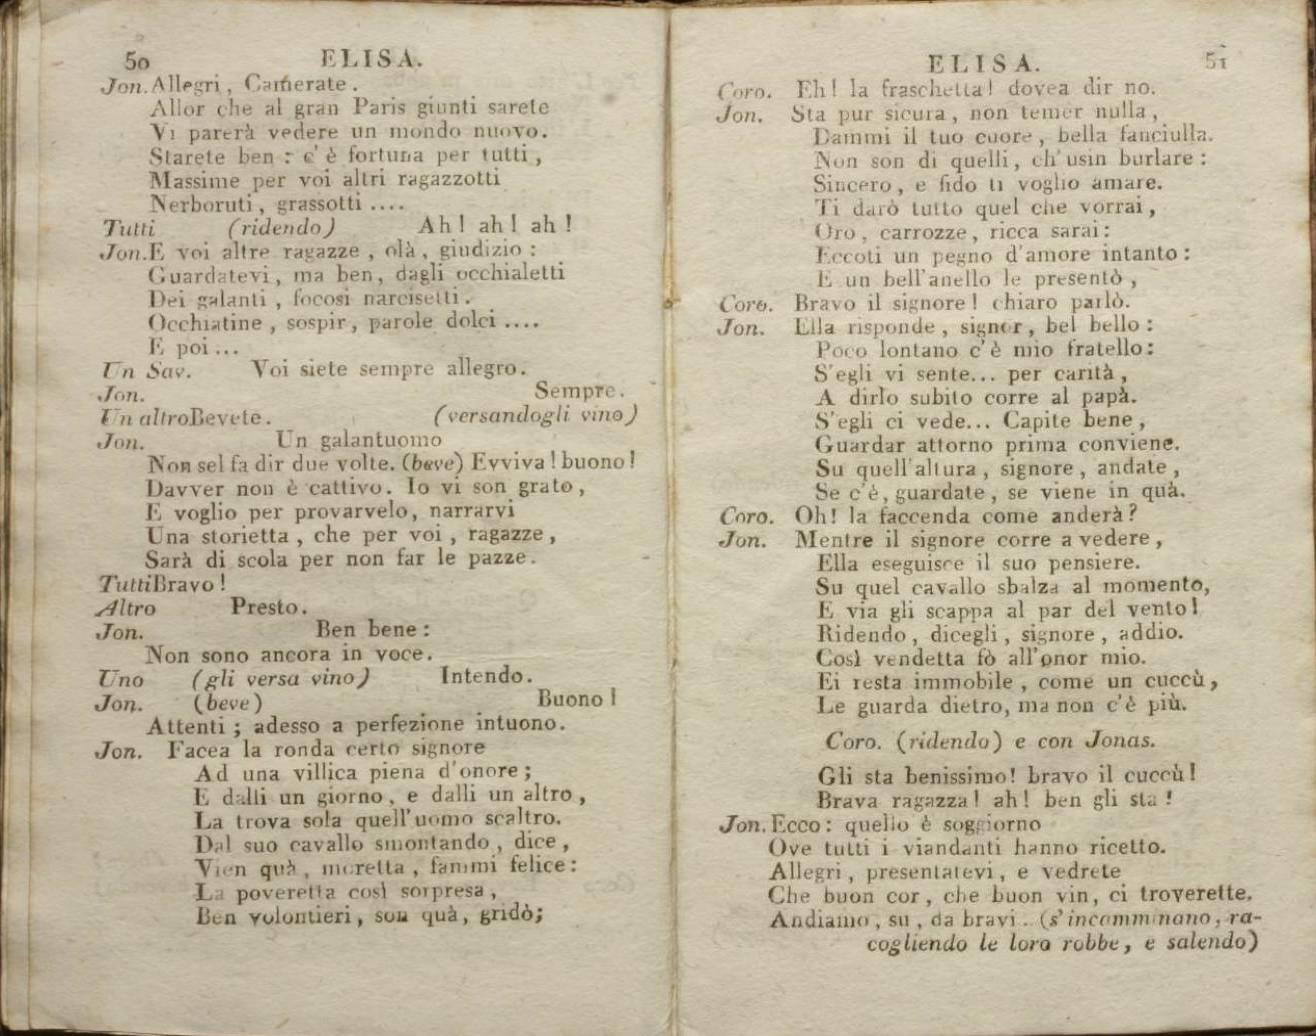 50
ELISA.
Jon. Allegri, Camerate.
Allor che al gran Paris giunti sarete
Vi parerà vedere un mondo nuovo.
Starete ben : c'è fortuna per tutti,
Massime per voi altri ragazzotti
Nerboruti, grassotti ....
Tutti (ridendo) Ah! ah! ah!
Jon. E voi altre ragazze, olà, giudizio :
Guardatevi, ma ben, dagli occhialetti
Dei galanti, focosi narcisetti.
Occhiatine, sospir, parole dolci ....
E poi ...
Un Sav. Voi siete sempre allegro.
Jon. Sempre.
Un altro Bevete. (versandogli vino)
Jon. Un galantuomo
Non sel fa dir due volte. (beve) Evviva! buono!
Davver non è cattivo. Io vi son grato,
E voglio per provarvelo, narrarvi
Una storietta, che per voi, ragazze,
Sarà di scola per non far le pazze.
Tutti Bravo!
Altro Presto.
Jon. Ben bene :
Non sono ancora in voce.
Uno (gli versa vino) Intendo.
Jon. (beve) Buono!
Attenti ; adesso a perfezione intuono.
Jon. Facea la ronda certo signore
Ad una villica piena d'onore ;
E dalli un giorno, e dalli un altro,
La trova sola quell'uomo scaltro.
Dal suo cavallo smontando, dice,
Vien quà, moretta, fammi felice :
La poveretta così sorpresa,
Ben volontieri, son quà, gridò;
ELISA.
51
Coro. Eh! la fraschetta! dovea dir no.
Jon. Sta pur sicura, non temer nulla,
Dammi il tuo cuore, bella fanciulla.
Non son di quelli, ch'usin burlare :
Sincero, e fido ti voglio amare.
Ti darò tutto quel che vorrai,
Oro, carrozze, ricca sarai :
Eccoti un pegno d'amore intanto :
E un bell'anello le presentò,
Coro. Bravo il signore! chiaro parlò.
Jon. Ella risponde, signor, bel bello :
Poco lontano c'è mio fratello :
S'egli vi sente... per carità,
A dirlo subito corre al papà.
S'egli ci vede... Capite bene,
Guardar attorno prima conviene.
Su quell'altura, signore, andate,
Se c'è, guardate, se viene in quà.
Coro. Oh! la faccenda come anderà?
Jon. Mentre il signore corre a vedere,
Ella eseguisce il suo pensiere.
Su quel cavallo sbalza al momento,
E via gli scappa al par del vento!
Ridendo, dicegli, signore, addio.
Così vendetta fò all'onor mio.
Ei resta immobile, come un cuccù,
Le guarda dietro, ma non c'è più.
Coro. (ridendo) e con Jonas.
Gli sta benissimo! bravo il cuccù!
Brava ragazza! ah! ben gli sta!
Jon. Ecco : quello è soggiorno
Ove tutti i viandanti hanno ricetto.
Allegri, presentatevi, e vedrete
Che buon cor, che buon vin, ci troverette.
Andiamo, su, da bravi. (s'incamminano, ra-
cogliendo le loro robbe, e salendo)